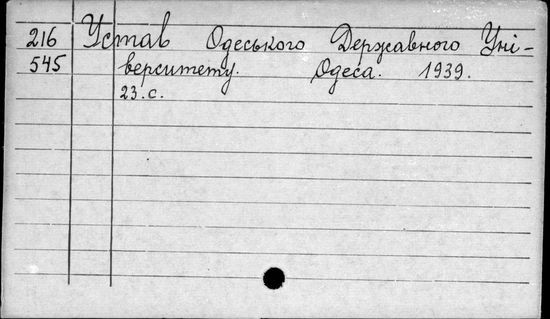 216 Устав Одеського Державного Уні-
545 верситету. Одеса. 1939.
23.с.